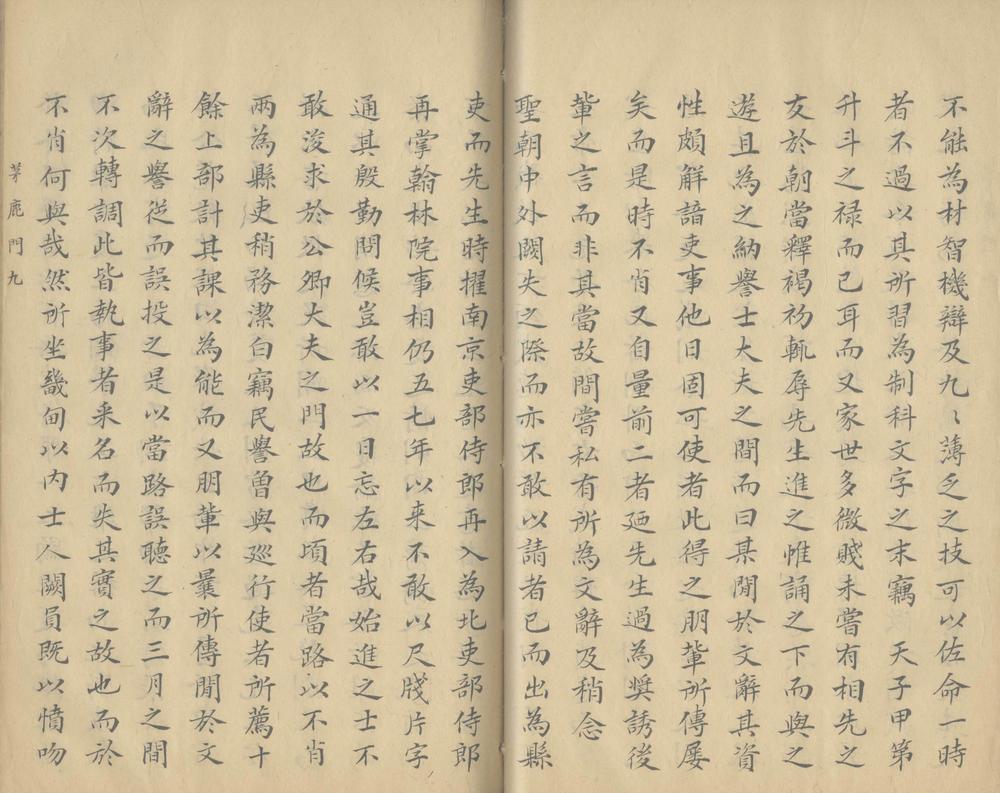 不能為材智機辯及九〻薄乏之技可以佐命一時
者不過以其所習為制科文字之末竊　天子甲第
升斗之禄而已耳而又家世多微賤未嘗有相先之
友於朝當釋褐初輒辱先生進之帷誦之下而與之
遊且為之納譽士大夫之間而曰某閒於文辭其資
性頗解諳吏事他日固可使者此得之朋輩所傳屡
矣而是時不肖又自量前二者廼先生過為奨誘後
輩之言而非其當故間嘗私有所為文辭及稍念
聖朝中外闕失之際而亦不敢以請者已而出為縣
吏而先生時擢南京吏部侍郎再入為北吏部侍郎
再掌翰林院事相仍五七年以来不敢以尺牋片字
通其殷勤問候豈敢以一日忘左右哉始進之士不
敢浚求於公卿大夫之門故也而頃者當路以不肖
兩為縣吏稍務潔白竊民譽曽與廵行使者所薦十
餘上部計其課以為能而又朋輩以曩所傳閒於文
辭之譽従而誤投之是以當路誤聴之而三月之間
不次轉調此皆執事者采名而失其實之故也而於
不肖何與哉然所坐畿甸以内士人闕員既以憤吻
茅鹿門九